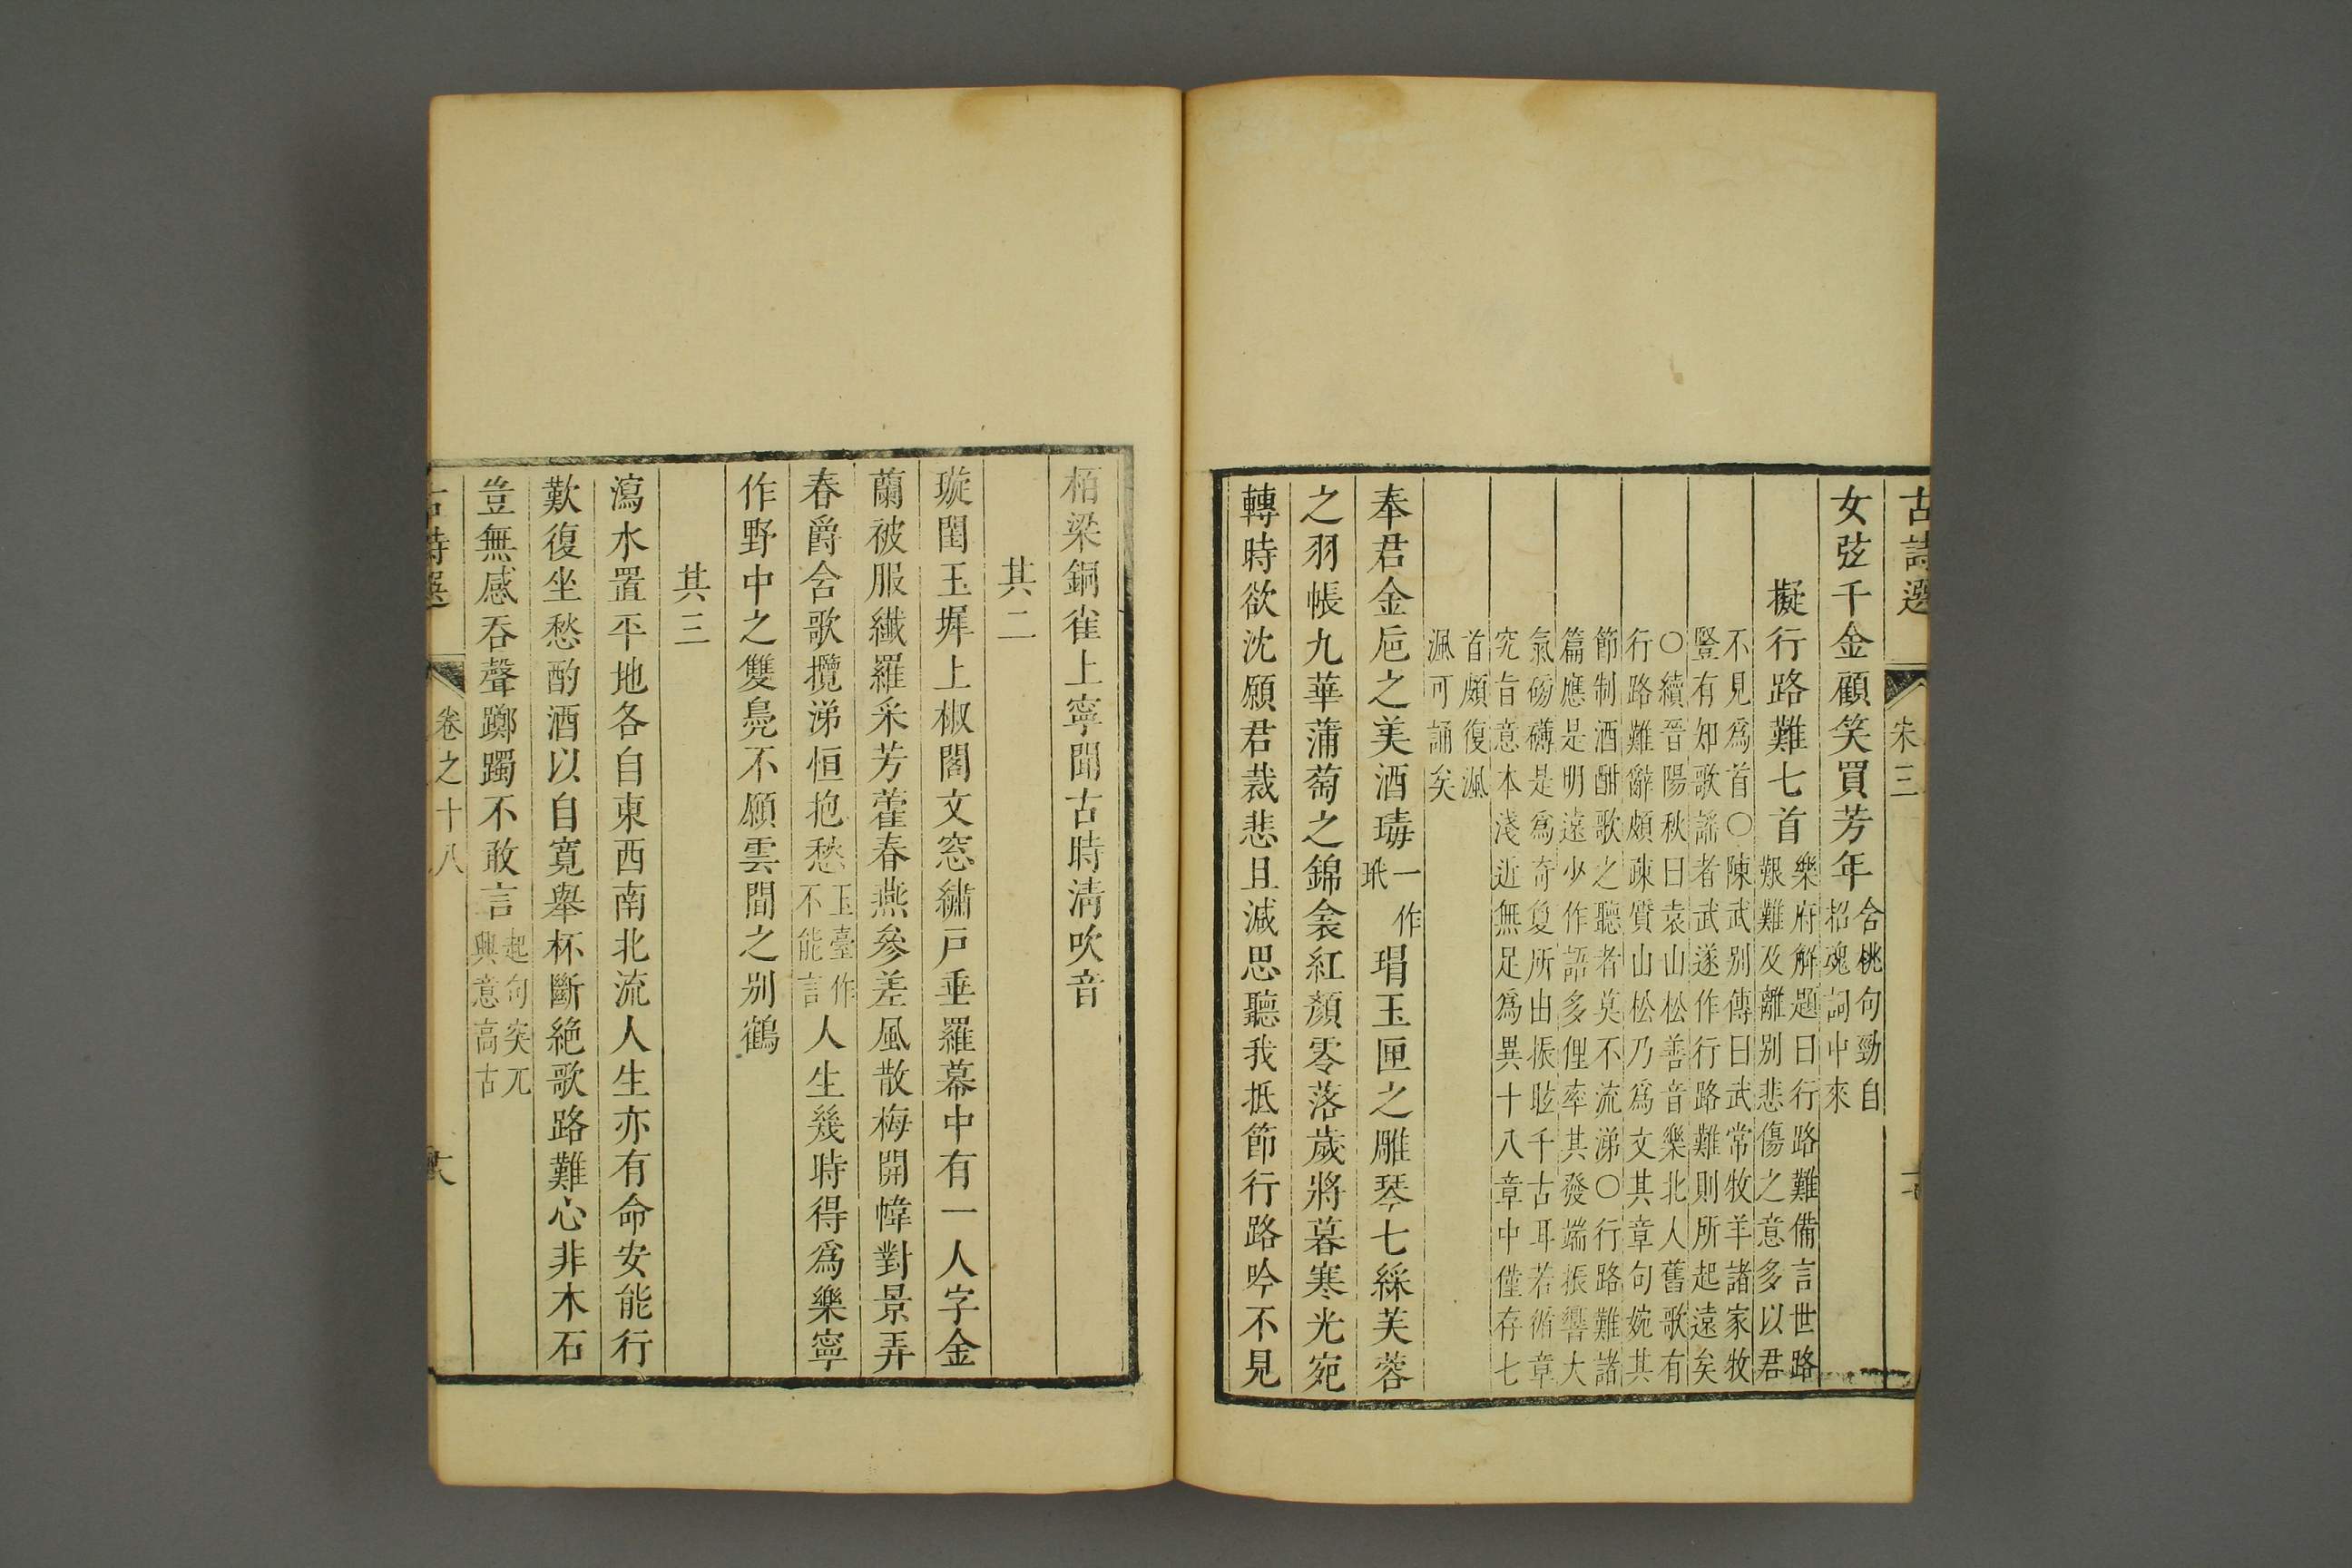 古詩選 宋三 十七
女弦千金顧笑買芳年 含桃句勁自
招魂詞中來
擬行路難七首 樂府解題曰行路難備言世路
艱難及離别悲傷之意多以君
不見爲首○陳武别傳曰武常牧羊諸家牧
豎有知歌謡者武遂作行路難則所起遠矣
○續晉陽秋曰袁山松善音樂北人舊歌有
行路難辭頗疎質山松乃爲文其章句婉其
節制酒酣歌之聽者莫不流涕○行路難諸
篇應是明遠少作語多俚率其發端振響大
氣磅礴是爲奇夐所由振眩千古耳若循章
究旨意本淺近無足爲異十八章中僅存七
首頗復渢
渢可誦矣
奉君金巵之美酒瑇一作玳瑁玉匣之雕琴七綵芙蓉
之羽帳九華蒲萄之錦衾紅顏零落歲將暮寒光宛
轉時欲沈願君裁悲且減思聽我抵節行路吟不見
栢梁銅雀上寧聞古時淸吹音
其二
璇閨玉墀上椒閣文窓繡戸垂羅幕中有一人字金
蘭被服纖羅采芳藿春燕參差風散梅開幃對景弄
春爵含歌攬涕恒抱愁玉臺作不能言人生幾時得爲樂寧
作野中之雙鳧不願雲間之别鶴
其三
瀉水置平地各自東西南北流人生亦有命安能行
歎復坐愁酌酒以自寬舉杯斷絶歌路難心非木石
豈無感吞聲躑躅不敢言 起句突兀
興意高古
古詩選 卷之十八 十八